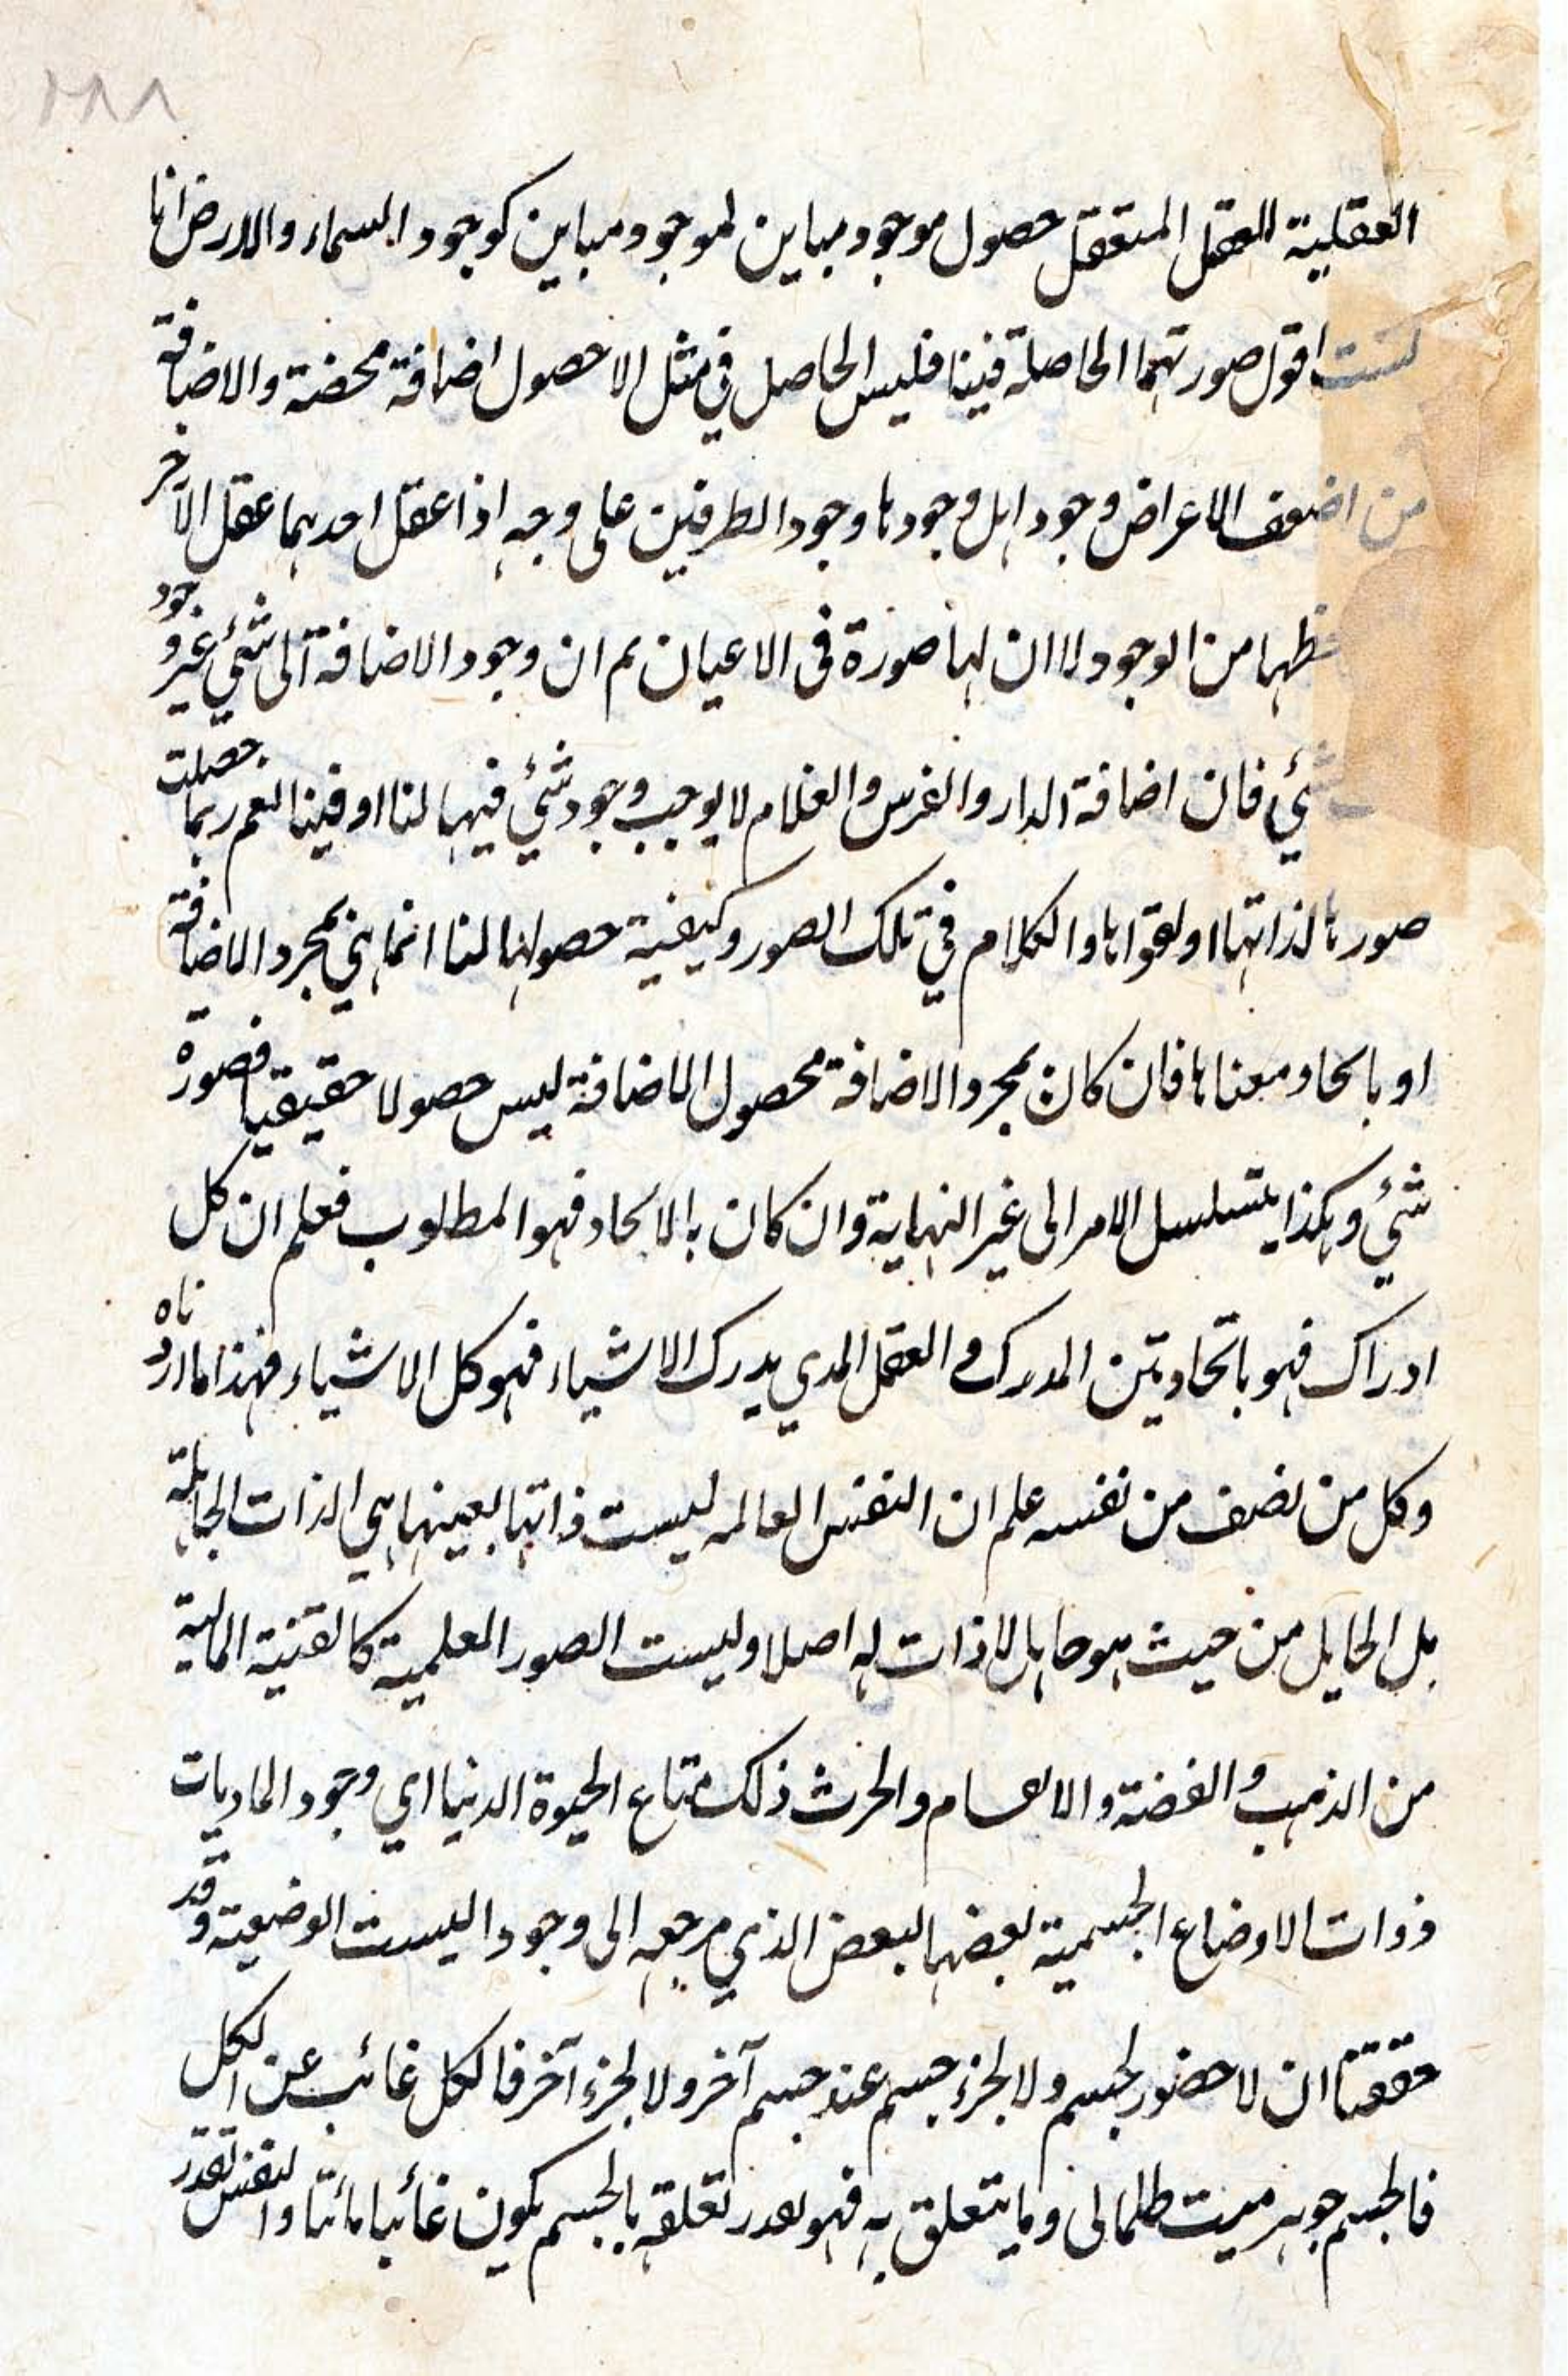 ١٨٨
العقلية للعقل المتعقل حصول موجود مباين لموجود مباين كوجود السماء والارض انا
لست اقول صورتهما الحاصلة فينا فليس الحاصل في مثل الا حصول اضافة محضة والاضافة
من اضعف الاعراض وجودا بل وجودها وجود الطرفين على وجه اذا عقل احدهما عقل الآخر
حظها من الوجود لا ان لها صورة في الاعيان ثم ان وجود الاضافة الى شئي غير وجود
شئي فان اضافة الدار والفرس والغلام لا يوجب وجود شئي فيها لنا او فينا نعم ربما حصلت
صورها لذاتها او لقوانا والكلام في تلك الصور وكيفية حصولها لنا انما هي بمجرد الاضافة
او باتحاد معناها فان كان بمجرد الاضافة محصول الاضافة ليس حصولا حقيقيا فصورة
شئي وهكذا يتسلسل الامر الى غير النهاية وان كان بالاتحاد فهو المطلوب فعلم ان كل
ادراك فهو باتحاد بين المدرك و العقل الذي يدرك الاشياء فهو كل الاشياء فهذا ما اردناه
وكل من نصف من نفسه علم ان النفس العالمه ليست ذاتها بعينها هي الذات الجاهلة
بل الجاهل من حيث هو جاهل لا ذات له اصلا وليست الصور العلمية كالقنية المالية
من الذهب و الفضة و الانعام والحرث ذلك متاع الحيوة الدنيا اي وجود الماديات
ذوات الاوضاع الجسمية بعضها لبعض الذي مرجعه الى وجود الليست الوضعية وقد
حققنا ان لا حضور لجسم ولا لجزء جسم عند جسم آخر ولا لجزء آخر فالكل غائب عن الكل
فالجسم جوهر ميت ظلمانى وما يتعلق به فهو بقدر تعلقه بالجسم يكون غائبا مائتا والنفس تقدر